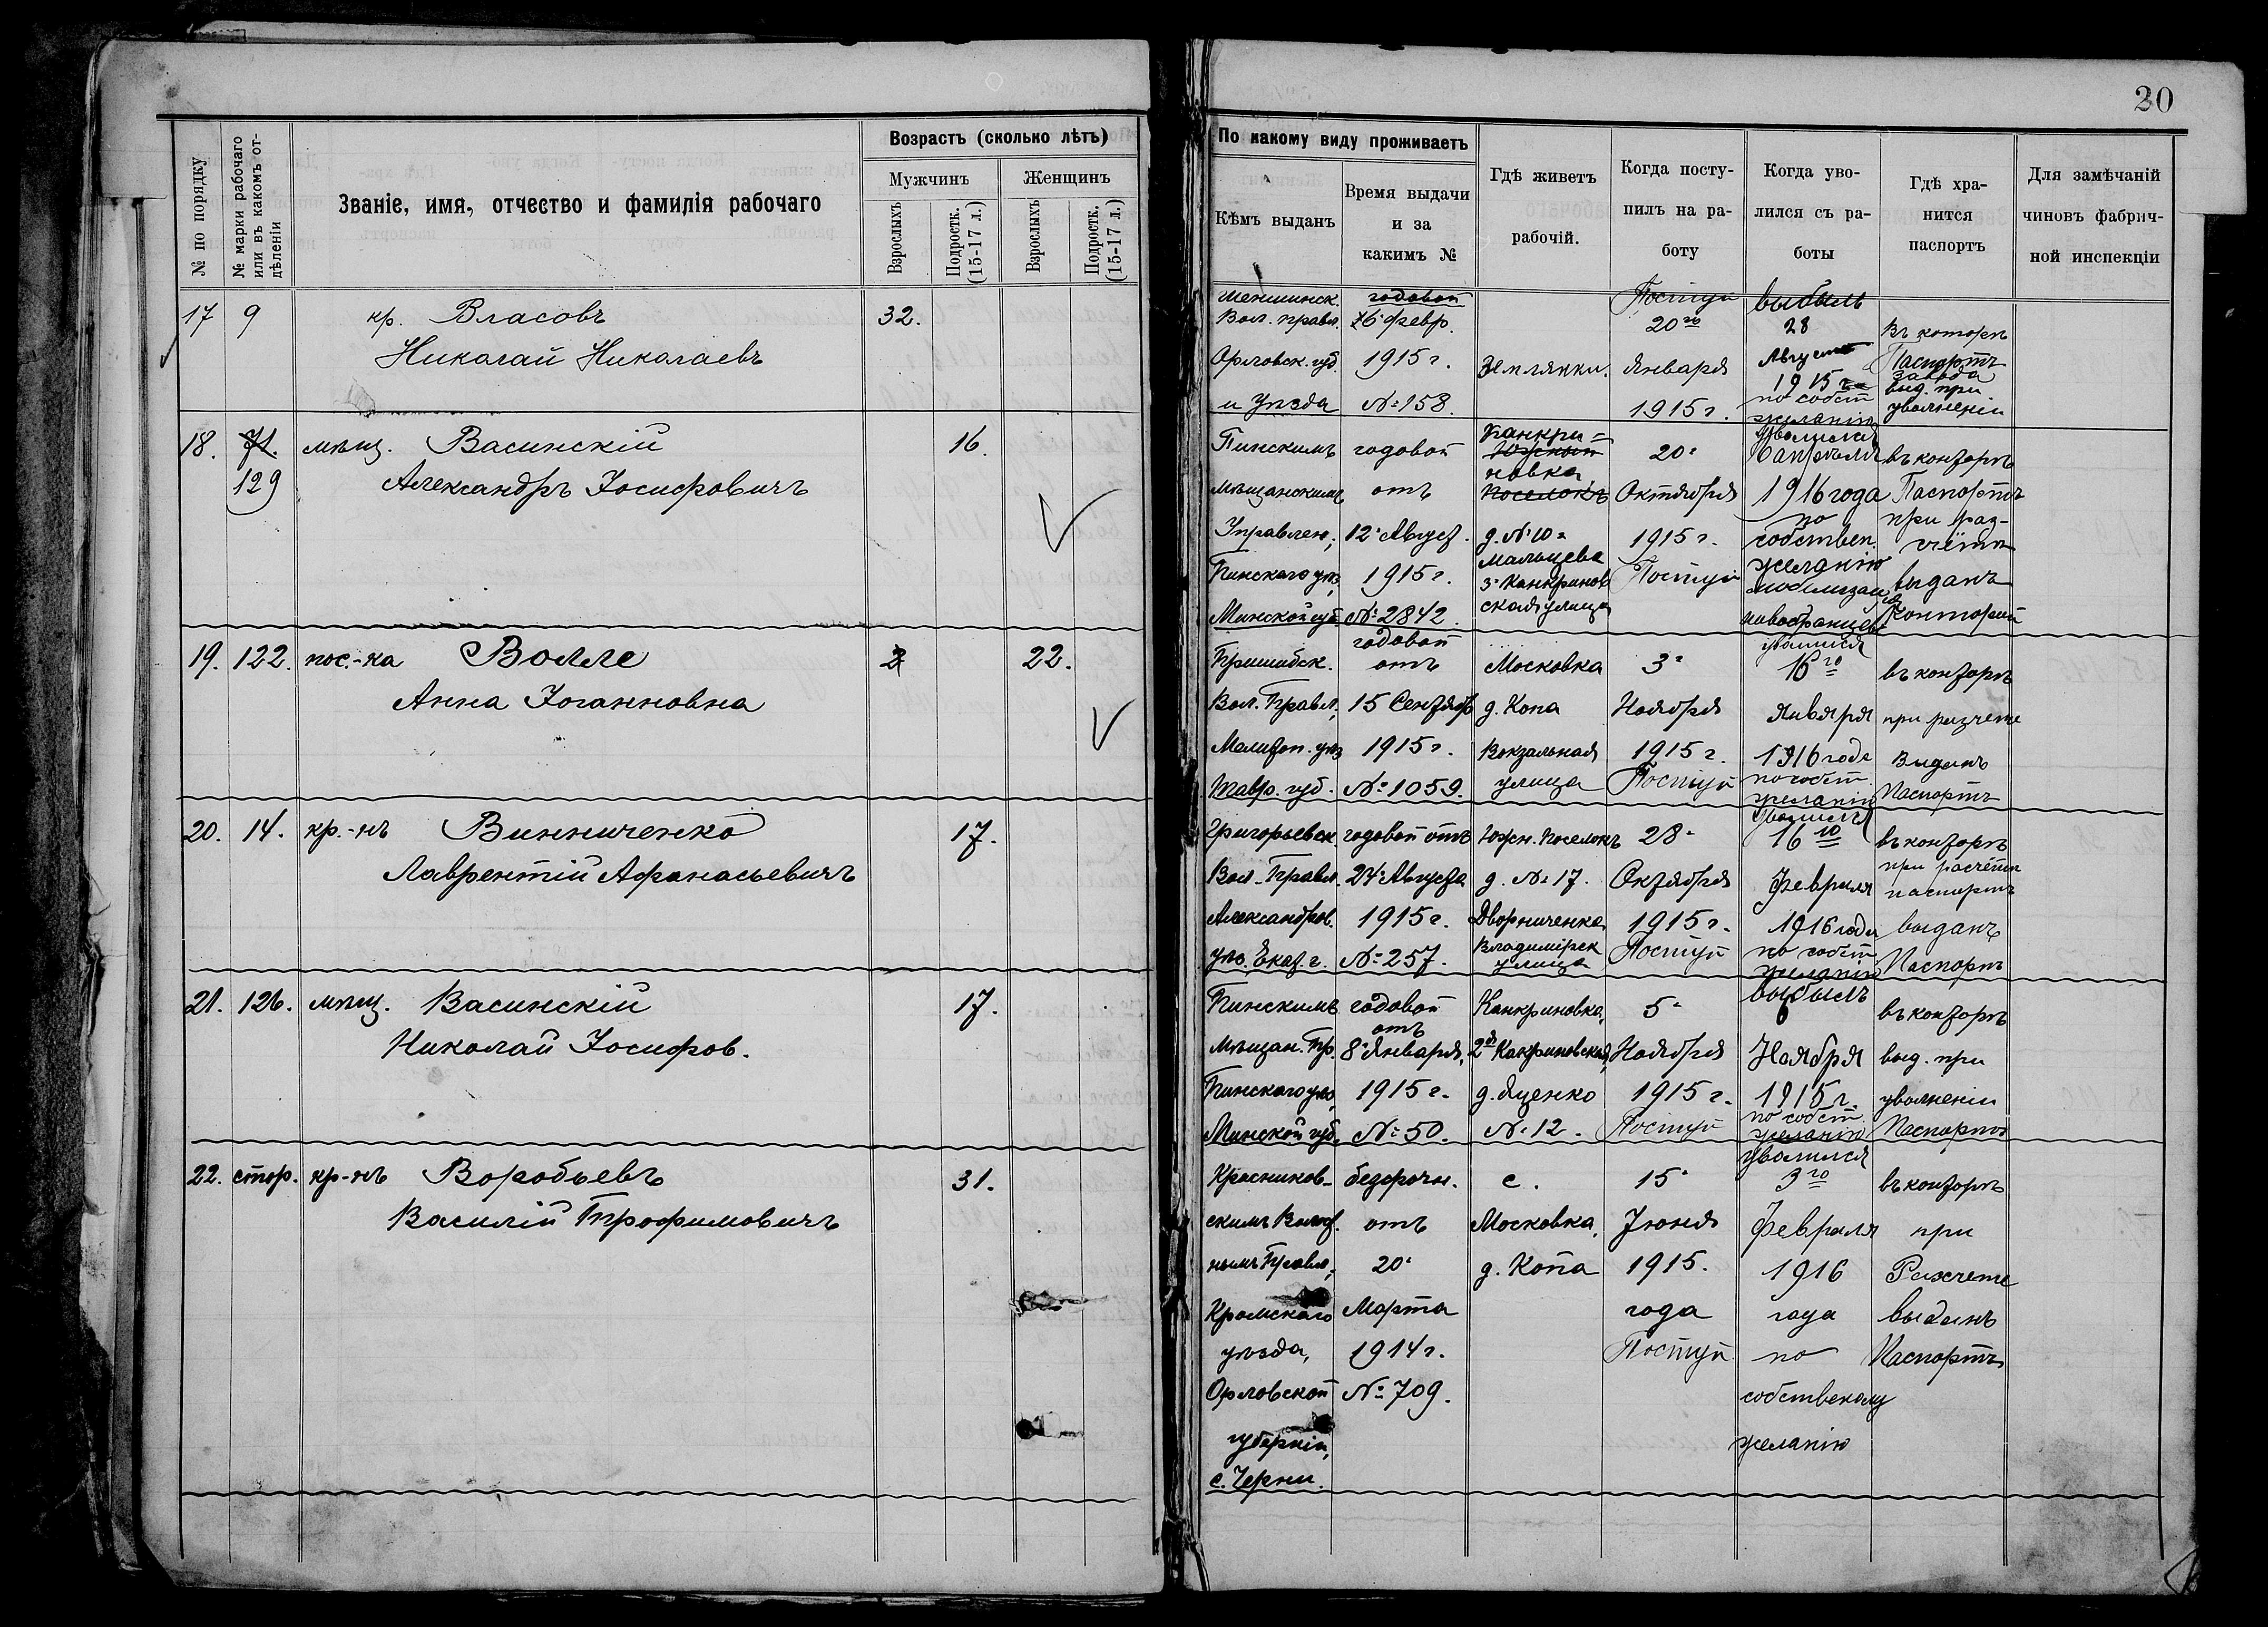 20
№ по порядку
№ марки рабочаго или въ какомъ отдѣленіи
Званіе, имя, отчество и фамилія рабочаго
Возрастъ (сколько лѣтъ)
Мужчинъ
Женщинъ
Взрослыхъ
Подростк. (15-17 л.)
Взрослыхъ
Подростк. (15-17 л.)
По какому виду проживаетъ
Кѣмъ выданъ
Время выдачи и за какимъ №
Гдѣ живетъ рабочій.
Когда поступилъ на работу
Когда уволился съ работы
Гдѣ хранится паспортъ
Для замѣчаній чиновъ фабричной инспекціи
17 9 кр. Власовъ 32.
Николай Николаевъ
Вол. правл.
Орловск. губ.
и уѣзда
годовой
16 февр.
1915 г.
№ 158.
Землянки.
Поступ
20го
Января
1915 г.
выбылъ
28
Август
1915 г
по собст
желанію
Въ конторѣ
Паспортъ
завода
выд. при
уволненіи
18. 71. мѣщ. Васинскій 16.
129 Александръ Іосифовичъ
Пинскимъ
мѣщанскимъ
Управлен.,
Пинскаго уѣз
Минской губ.
годовой
отъ
12 Август.
1915 г.
№ 2842.
Канкри=
Южный
новка
поселокъ
д. № 10
Мальцева
3 Канкринов
ская улица
20
Октября
1915 г.
Поступ
Уволился
6 апрѣля
1916 года
по
собствен
желанію
въ конторѣ
Паспортъ
при раз-
счётѣ
выданъ
Конторой
19. 122. пос.-ка Волле 2 22.
Анна Іоганновна
Пришибск.
Вол. Правл.,
Мелитоп. уѣз
Тавр. губ.
годовой
отъ
15 Сентябр
1915 г.
№ 1059.
Московка
д. Копа
Вокзальная
улица
3
Ноября
1915 г.
Поступ
уволился
16го
Января
1916 года
по собст
желанію
въ конторѣ
при разчете
Выданъ
Паспортъ
20. 14. кр.-нъ Винниченко 17.
Лаврентій Афанасьевичъ
Григорьевск.
Вол. Правл.
Александров.
уѣз. Екат. г.
годовой отъ
24 Августа
1915 г.
№ 257.
Южн. поселокъ
д. № 17.
Дворниченко
Владимірск
улица
28
Октября
1915 г.
Поступ
Уволился
16го
Февраля
1916 года
по собст
желанію
въ конторѣ
при расчётѣ
паспортъ
выданъ
Паспортъ
21. 126. мѣщ. Васинскій 17.
Николай Іосифов.
Пинскимъ
Мѣщан. Пр.
Пинскаго уѣз,
Минской губ.
годовой
отъ
8 Января,
1915 г.
№ 50.
Канкриновка,
2я Канкриновская,
д. Яценко
№ 12.
5
Ноября
1915 г.
Поступ
выбылъ
6
Ноября
1915 г.
по собст
желанію
въ конторѣ
выд. при
уволненіи
Паспортъ
22. стор. кр-нъ Воробьевъ 31.
Василій Трофимовичъ
Красников-
скимъ Волост.
нымъ Правл.,
Кромскаго
уѣзда,
Орловской
губерніи,
с. Черни.
безсрочн.
отъ
20
Марта
1914 г.
№ 709.
с.
Московка,
д. Копа
15
Іюня
1915.
года
Поступ
уволился
3го
Февраля
1916
года
по
собственому
желанію
въ конторѣ
при
Расчете
выданъ
Паспортъ